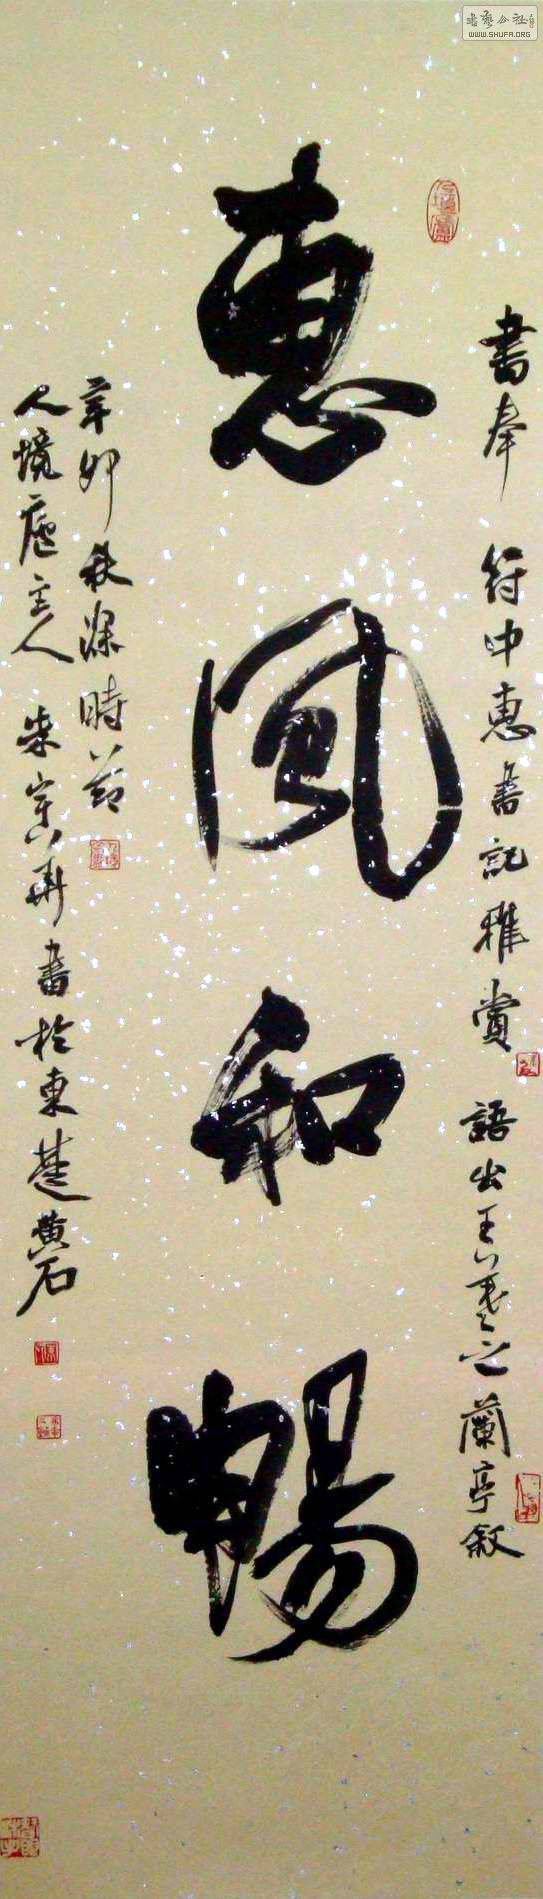 書奉 行中惠書記雅賞 語出王羲之蘭亭敘
惠風和暢
辛卯秋深時節
人境廬主人 朱 書於東楚黃石
書藝公社
WWW.SHUFA.ORG